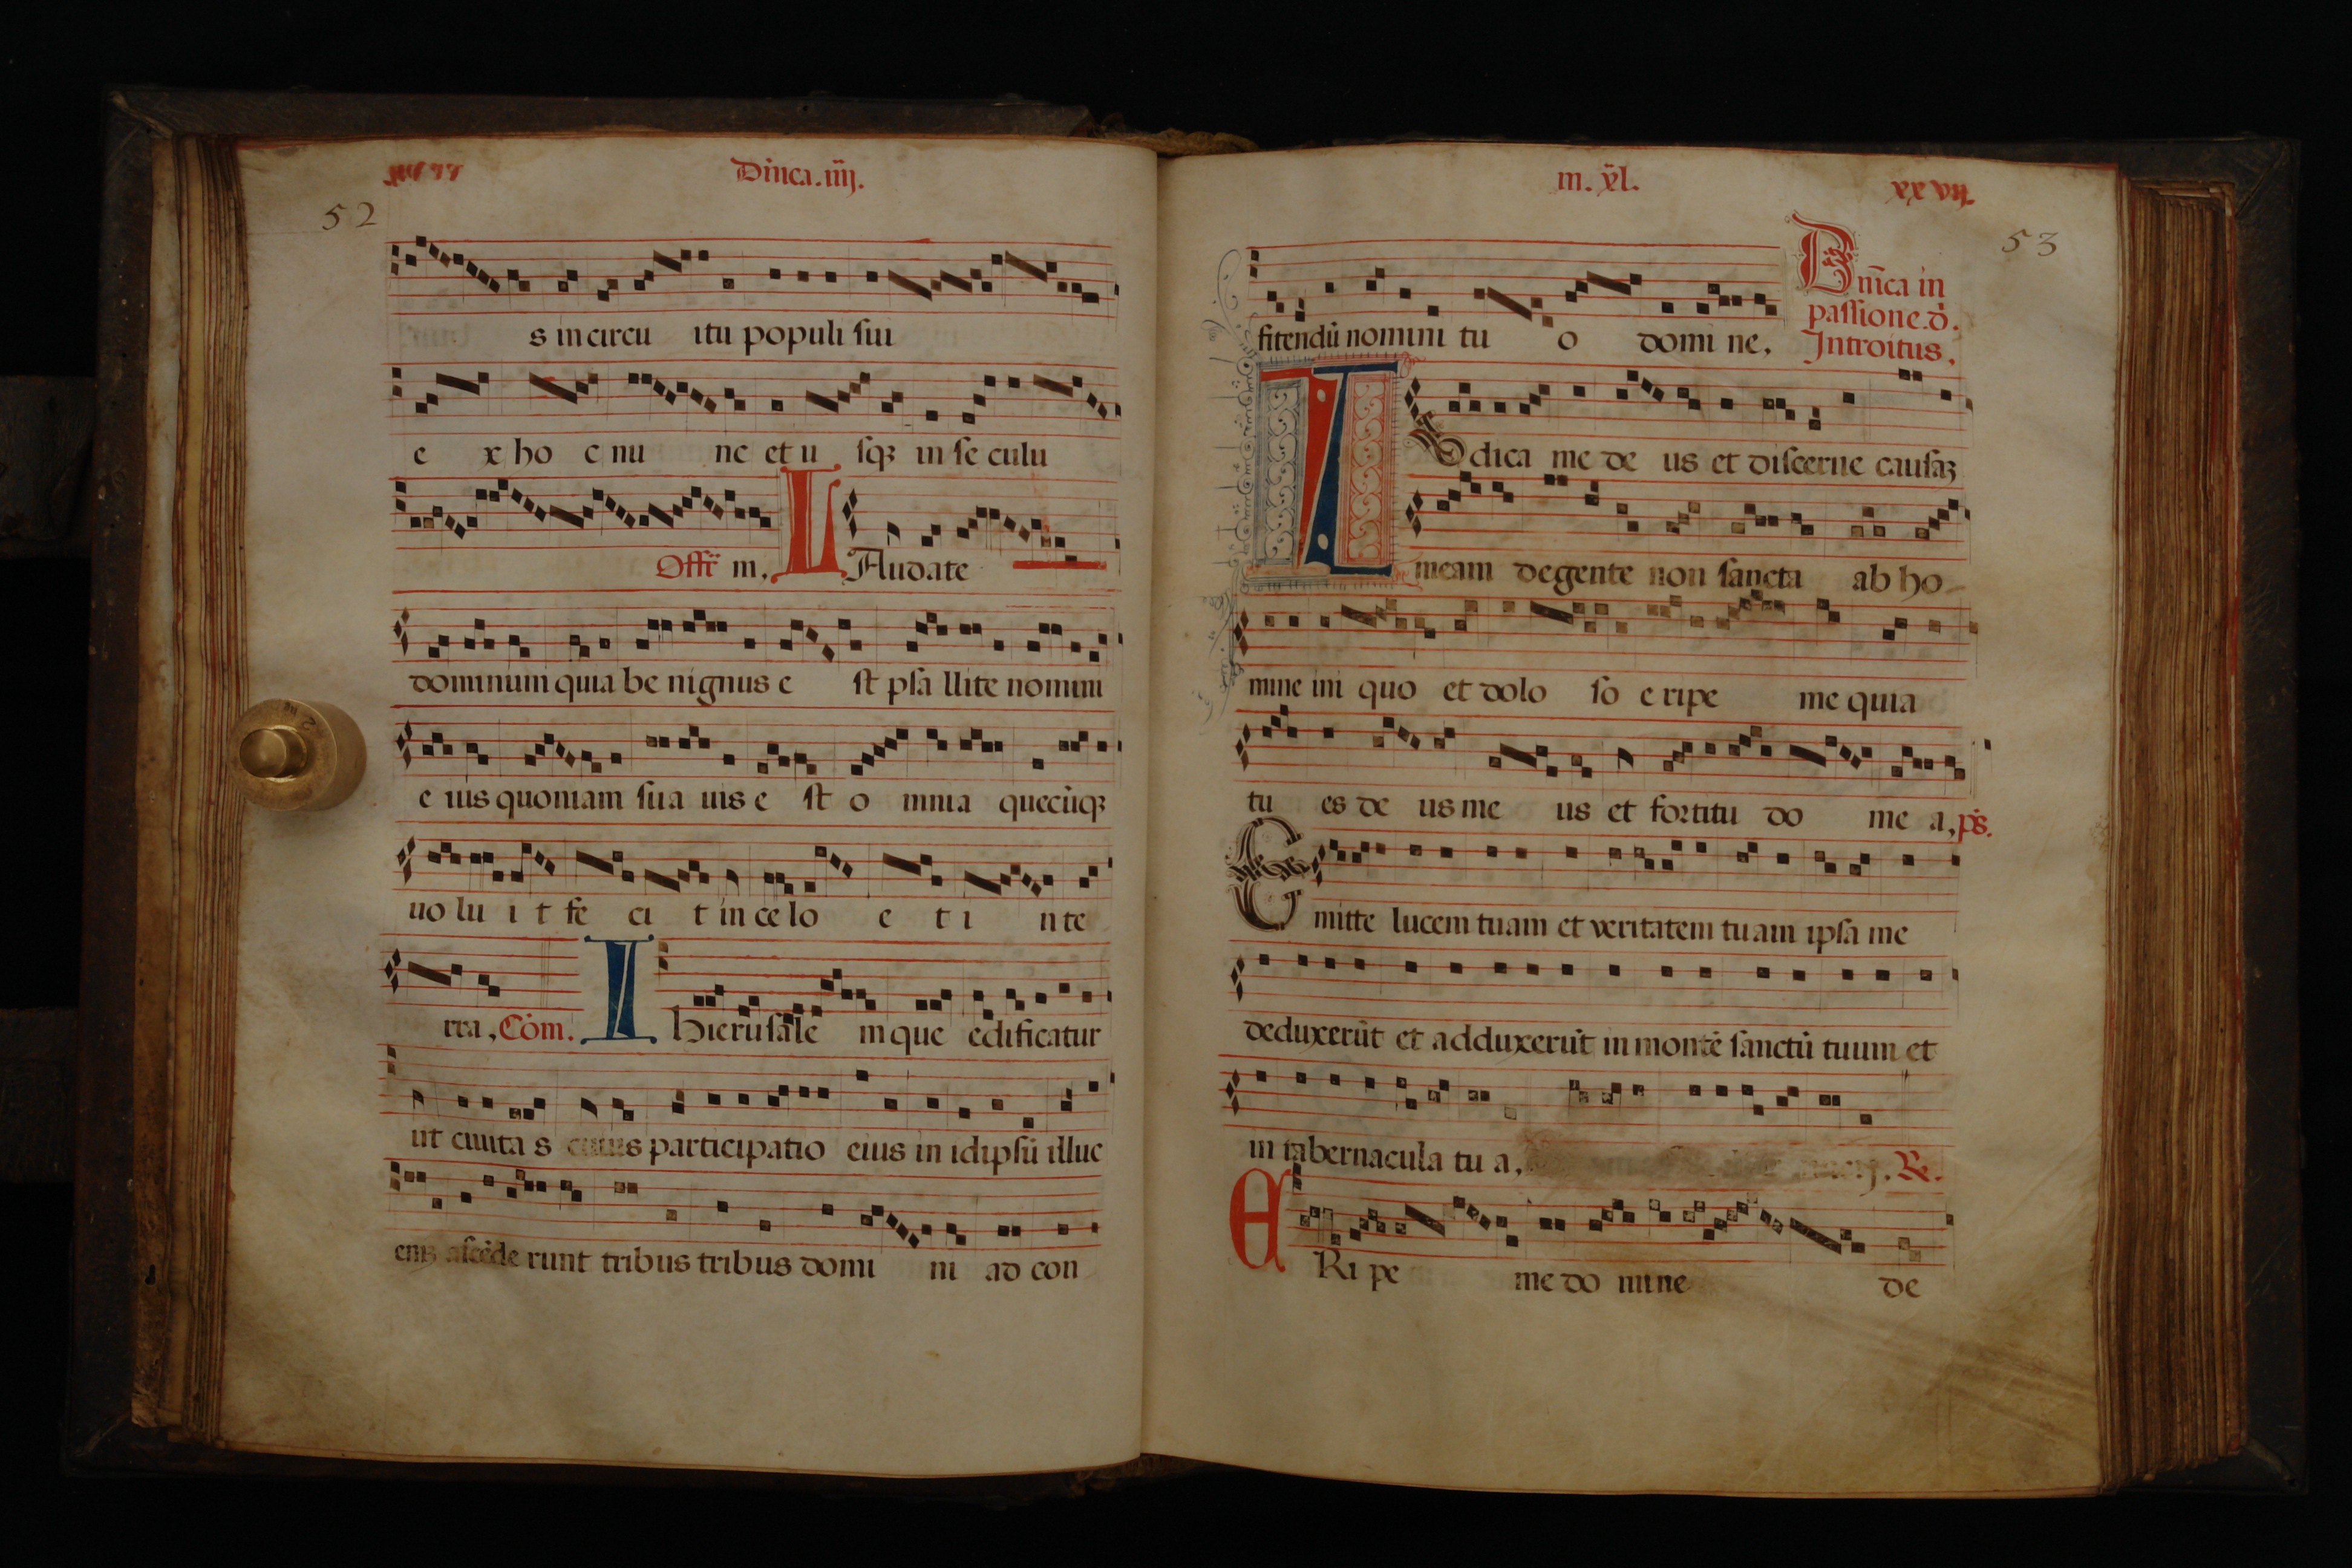 Dnica.iiij.
52
s in circu itu populi sui
e x ho c nu nc et u sqꝫ in se culu
Offr̄ m. LAudate
dominum quia be nignus e st psa llite nomini
e ius quoniam sua uis e st o mnia quecūqꝫ
uo lu i t fe ci t in ce lo e t i n te
rra, Cōm. Hierusale m que edificatur
ut ciuita s cuius participatio eius in idipsū illuc
enim ascēde runt tribus tribus domi ni ad con
m. xl. xxvij.
53
fitendū nomini tu o domi ne,
Dn̄ica in
passione.d.
Introitus.
IUdica me de us et discerne causaꝫ
meam de gente non sancta ab ho-
mine ini quo et dolo so e ripe me quia
tu es de us me us et fortitu do me a, ps.
Emitte lucem tuam et veritatem tuam ipsa me
deduxerūt et adduxerūt in montē sanctū tuum et
in tabernacula tu a, R.
ERi pe me do mine de